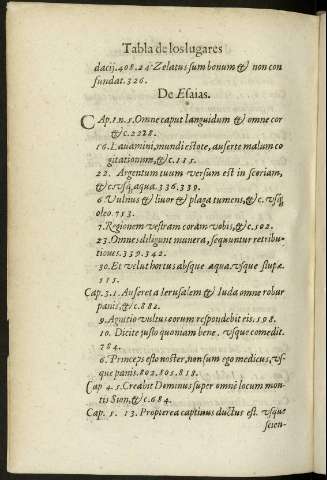 Tabla de los lugares
dacij. 408. 24. Zelatus sum bonum & non con
fundat. 326.
De Esaias.
CAp. 1. n. 5. Omne caput languidum & omne cor
&c. 2228.
16. Lauamini, mundi estote, auferte malum co
gitationum, &c. 115.
22. Argentum tuum versum est in scoriam,
&c. vsq; aqua. 336. 339.
6 Vulnus & liuor & plaga tumens, &c. vsq;
oleo. 713.
7. Regionem vestram coram vobis, &c. 102.
23. Omnes diligunt munera, sequuntur retribu-
tiones. 339. 342.
30. Et velut hortus absque aqua. vsque stupæ.
115.
Cap. 3. 1. Auferet a Ierusalem & Iuda omne robur
panis, &c. 882.
9. Agnitio vultus eorum respondebit eis. 198.
10. Dicite justo quoniam bene. vsque comedit.
784.
6. Princeps esto noster, non sum ego medicus, vs-
que panis. 802. 805. 819.
Cap 4. 5. Creabit Dominus super omnē locum mon-
tis Sion, &c. 684.
Cap. 5. 13. Propterea captiuus ductus est. vsque
scien-